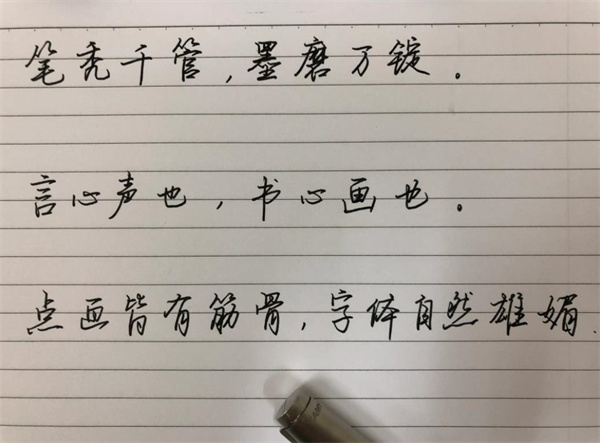 笔秃千管，墨磨万锭。
言心声也，书心画也。
点画皆有筋骨，字体自然雄媚.